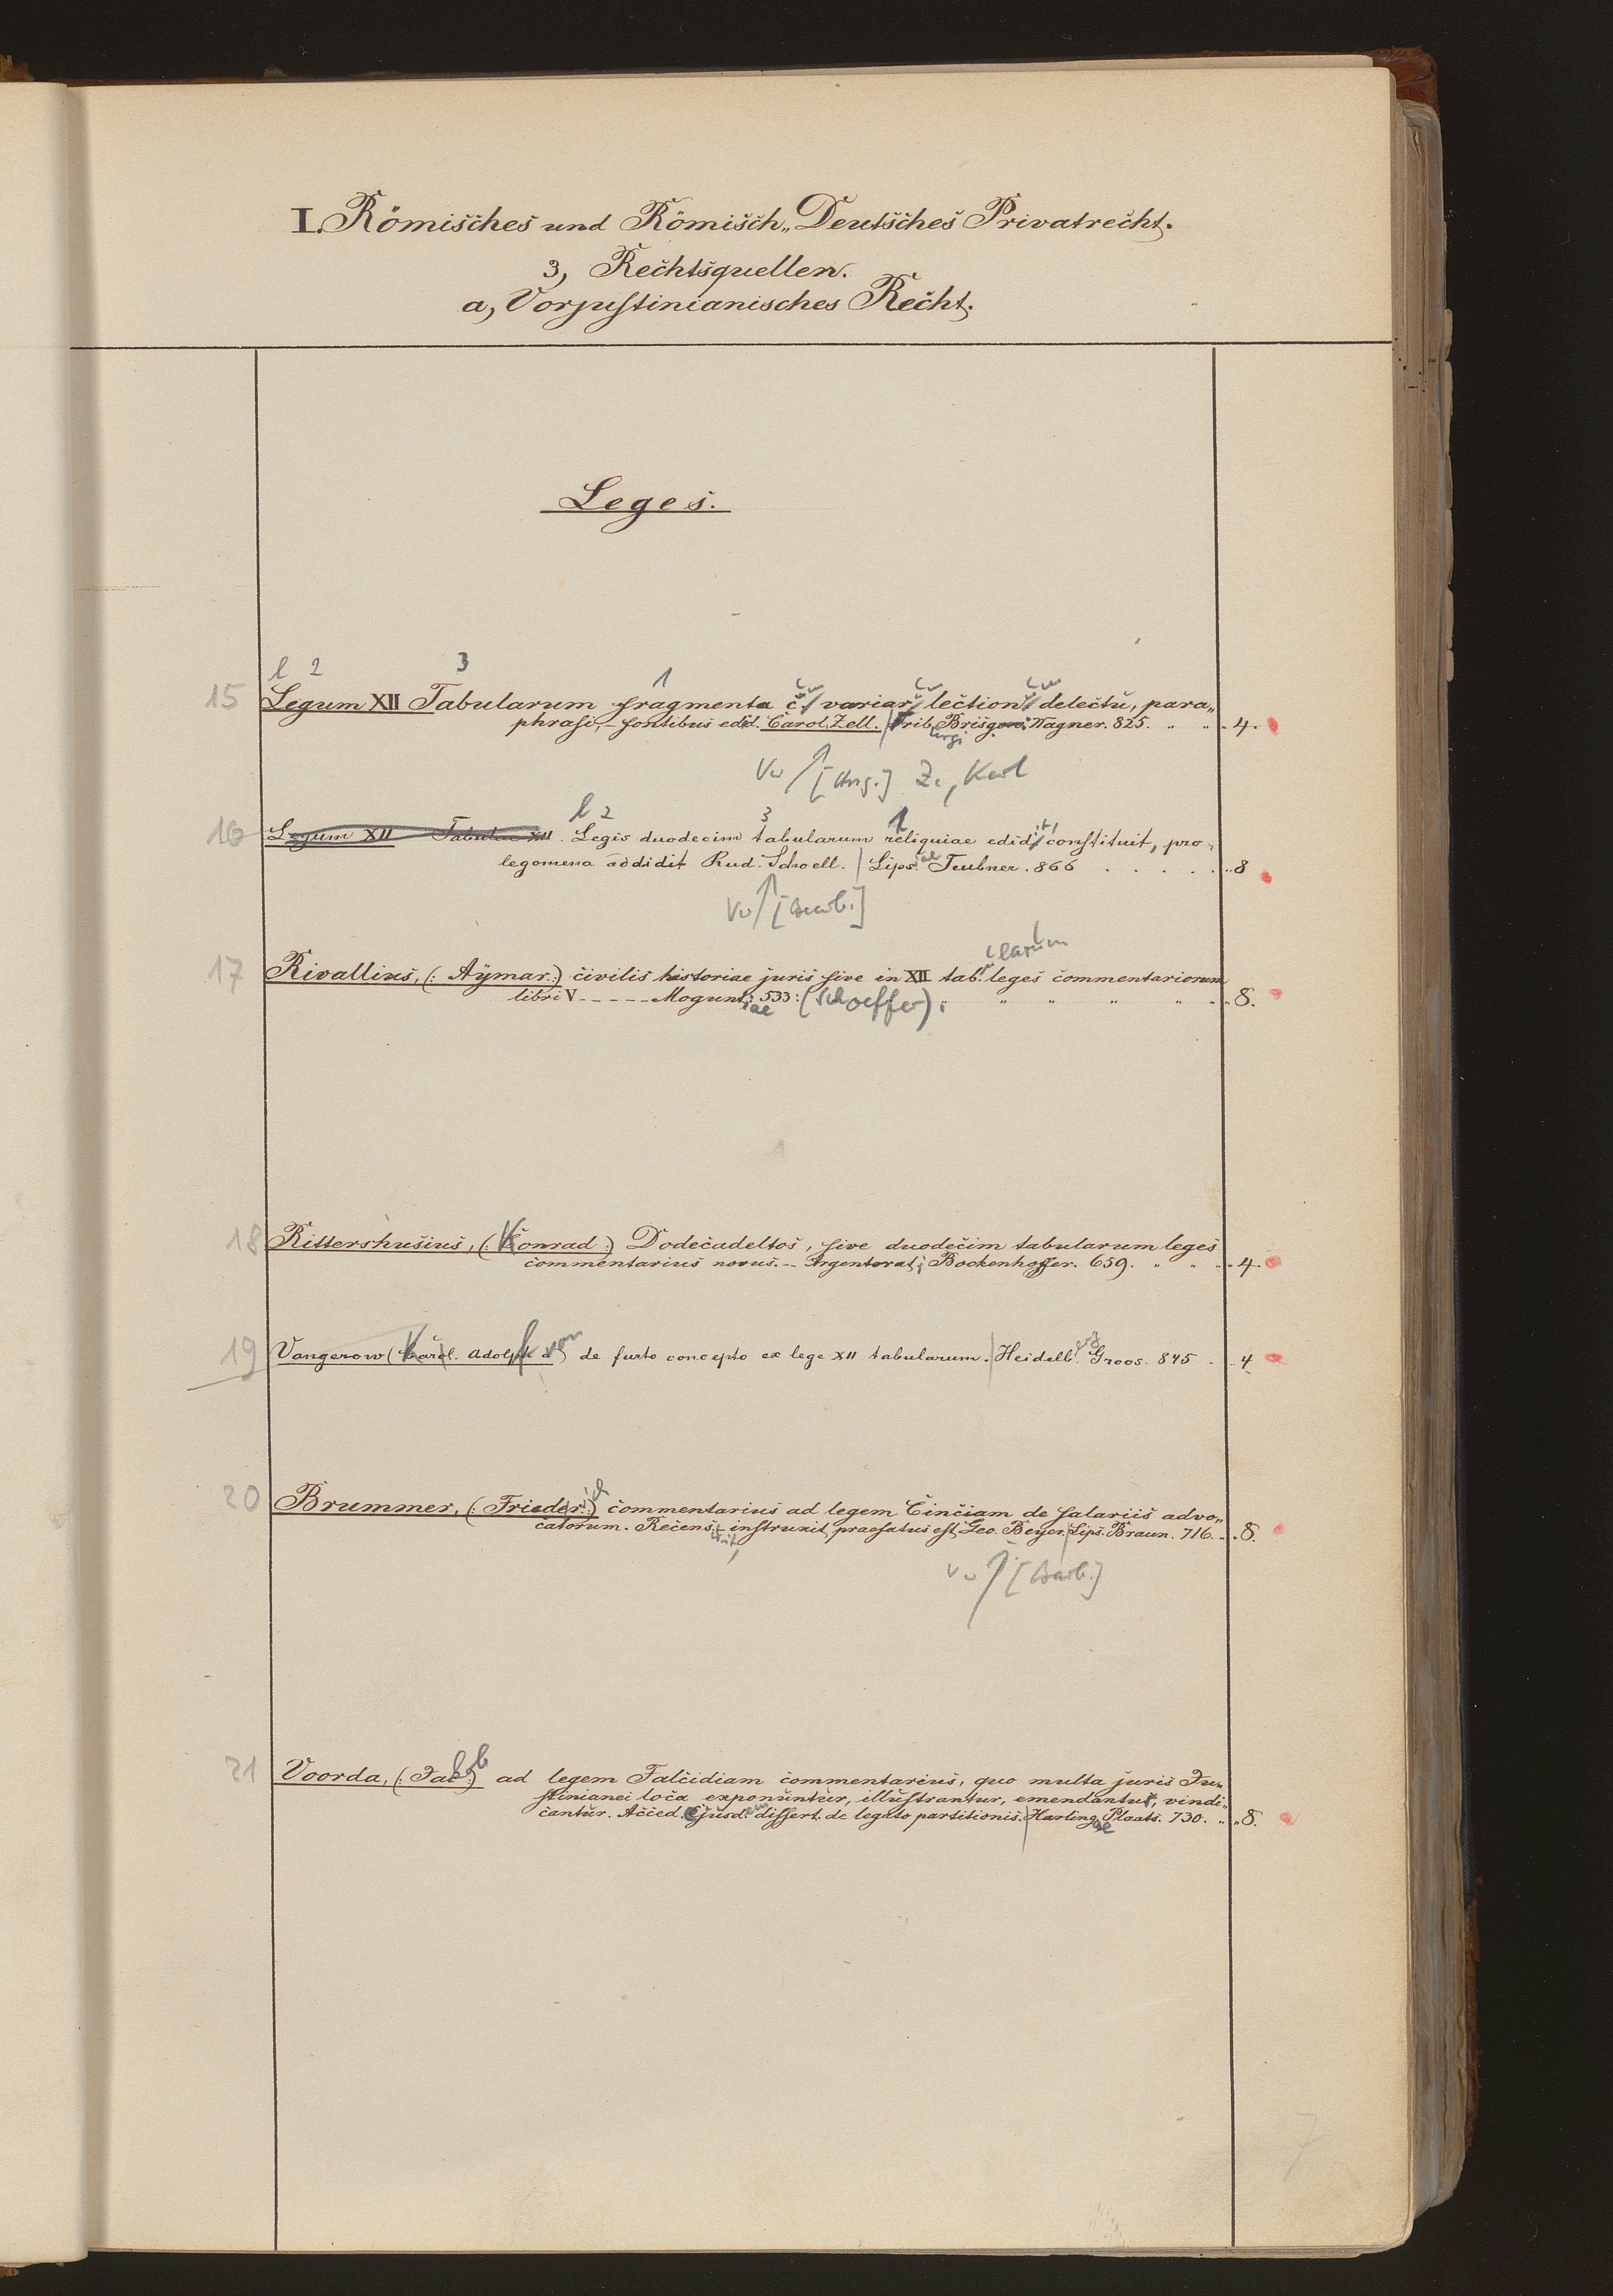 I. Römisches und Römisch„Deutsches Privatrecht.
3, Rechtsquellen.
a, Vorjustinianisches Recht.
Leges.
l 2 3 1
15 Legum XII Tabularum fragmenta c. variar. lection. delectu, para„
phrasi, fontibus edid. Carol. Zell. Frib. Brisgov. Wagner. 825. „ „ „ 4.
[Hrsg.] Ze, Karl
l 2 3 1
16 Legum XII Tabulae XII. Legis duodecim tabularum reliquiae edidit, constituit, pro„
legomena addidit Rud. Schoell. | Lips. Teubner. 866 . . . . . „ 8
[Bearb.]
clarum
17 Rivallius, (: Aÿmar :) civilis historiae juris sive in XII tab. leges commentariorum
libri V _ _ _ _ _ Moguntiae 533. (Schoeffer). „ „ „ „ „ „ 8.
18 Rittershusius, (: Konrad :) Dodecadeltos, sive duodecim tabularum leges
commentarius novus. _ _ Argentorati, Bockenhoffer. 659. „ „ „ 4.
19 Vangerow (Karl. Adolf von) de furto concepto ex lege XII tabularum. | Heidelb. Groos. 845 . „ 4
20 Brummer, (: Friederich :) commentarius ad legem Cinciam de salariis advo„
catorum. Recens. instruxit, praefatus est Geo. Beyer. | Lips. Braun. 716. „ „ 8.
[Bearb.]
21 Voorda, (: Jacob :) ad legem Falcidiam commentarius, quo multa juris Ju„
stinianei loca exponuntur, illustrantur, emendantur, vindi„
cantur. Acced. ejusdem dissert. de legato partitionis. | Harlingae Plaats. 730. „ „ 8.
7